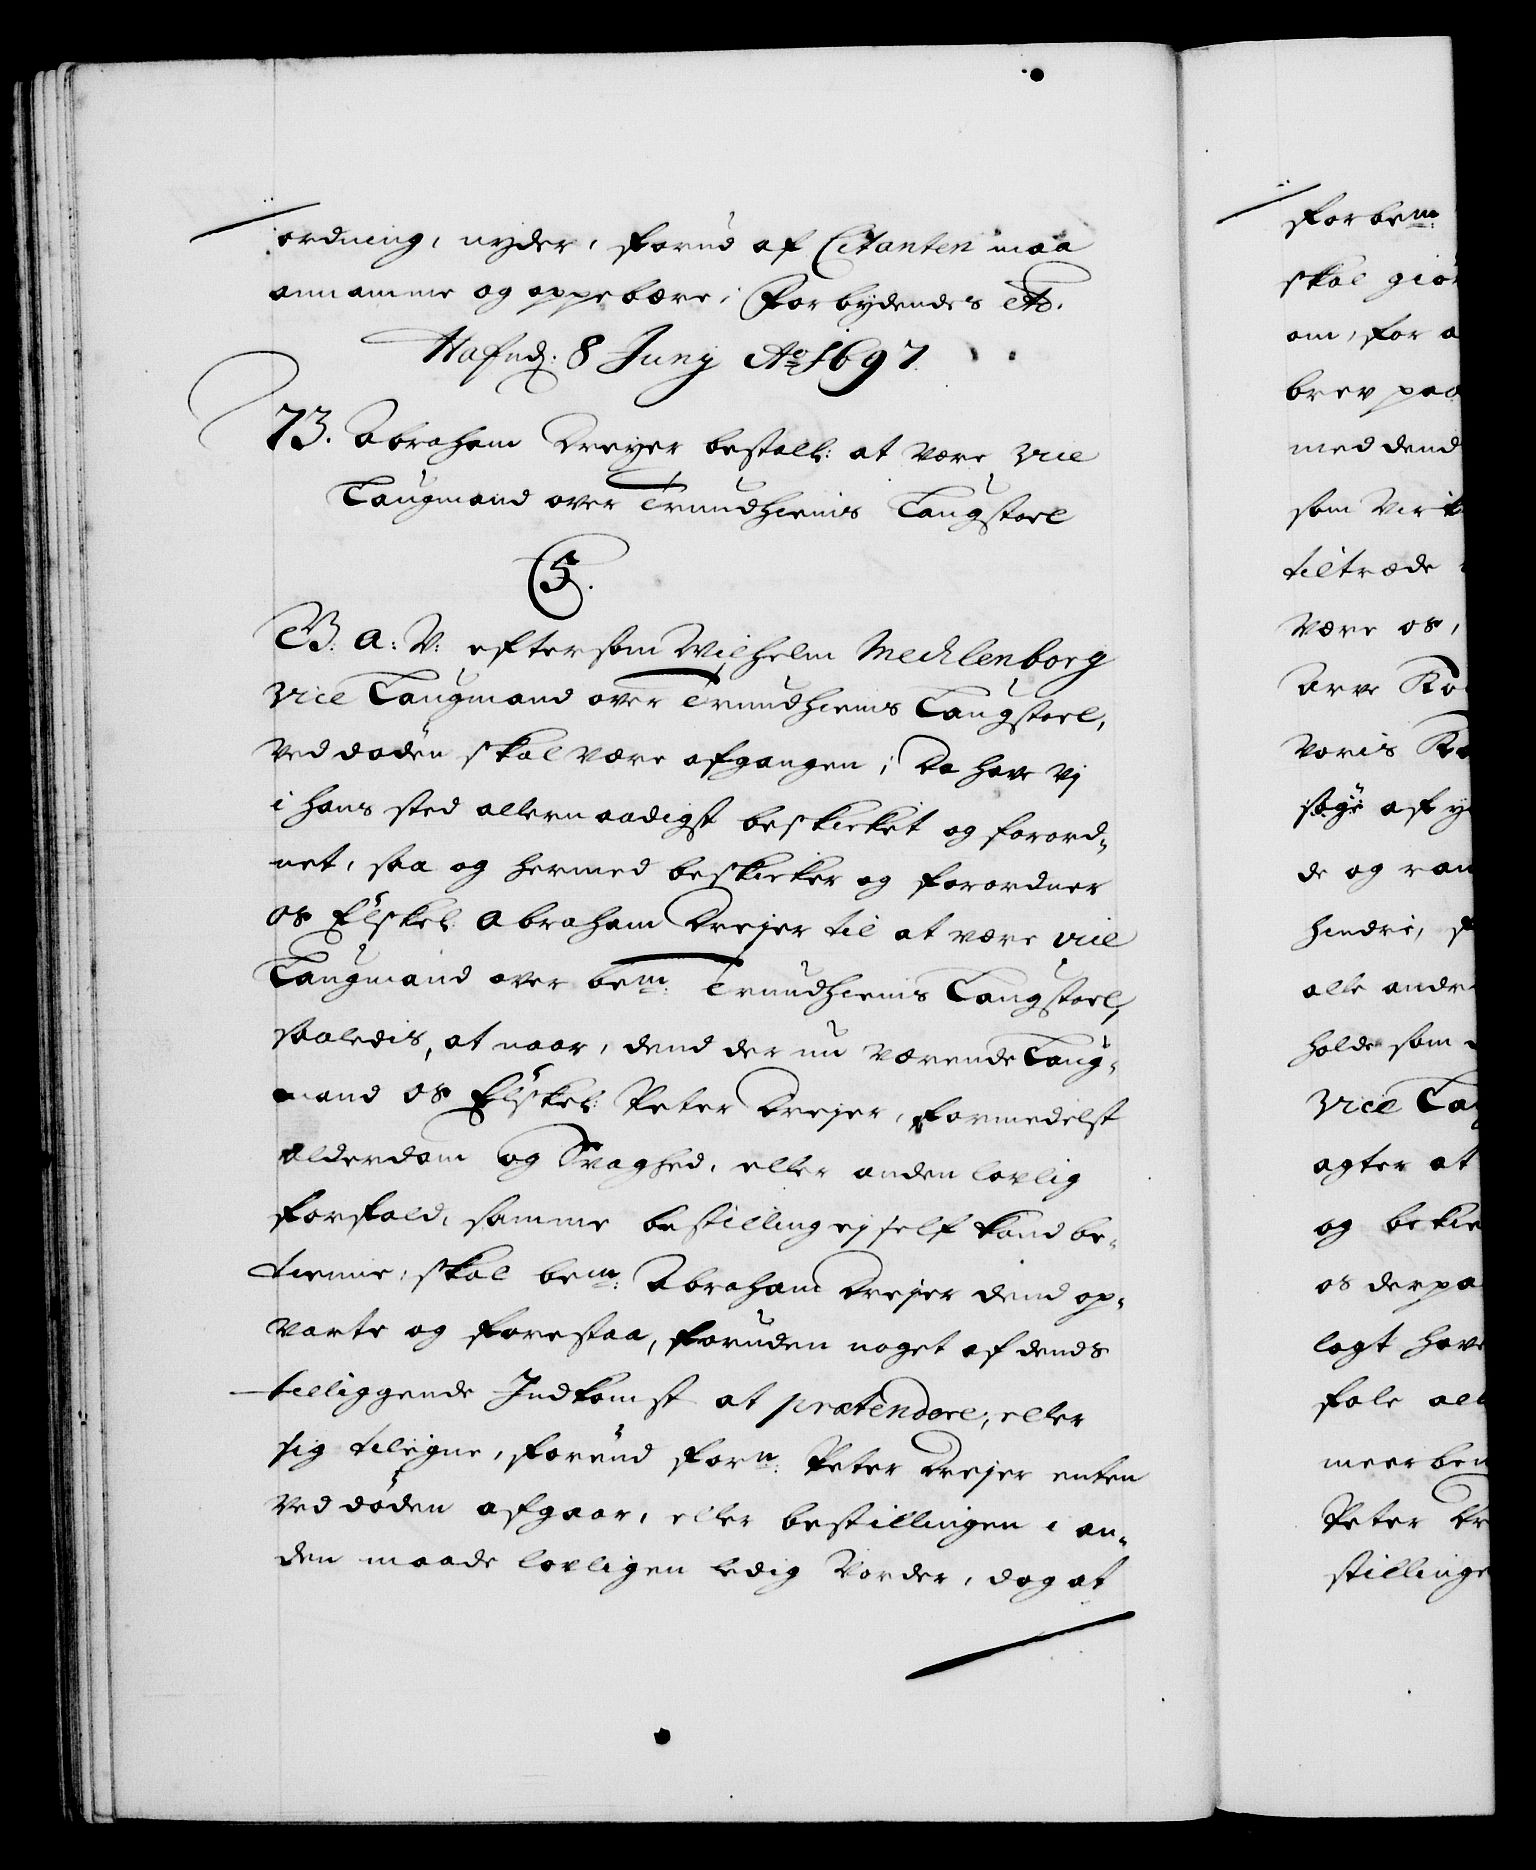 ordning, nyder, forud af Citanten maa
annamme og oppebære; Forbydendes etc.
Hafnd: 8 Junij Ao 1697.
73. Abraham Dreyer bestall: at være Vice
Laugmand over Trundhiems Laugstoel
C5.
G. a: V: eftersom Wilhelm Mecklenborg
Vice Laugmand over Trundhiems Laugstoel,
ved døden skal være afgangen; Da have Vj
i hans sted allernaadigst beskicket og forord-
net, saa og hermed beskicker og forordner
os Elskel: Abraham Drejer til at være vice
Laugmand over bem: Trundhiems Laugstoel,
saaledis, at naar, dend der nu værende Laug-
mand os Elskel: Peter Drejer, formedelst
Alderdom og Svaghed, eller anden lovlig
forfald, samme bestilling ej self kand be-
tienne, skal bem: Abraham Drejer dend op-
varte og forestaa, foruden noget af dends
tilliggende Indkomst at prætendere, eller
sig tilegne, forend forn: Peter Drejer enten
ved døden afgaar, eller bestillingen i an-
den maade lovligen ledig vorder, dog at
forbem:
skal giør
om, for a
brev paa
med dend
som Virk
tiltræde
Være os,
Arve Ko
Voris K
søge af y
de og ram
hindre, f
alle andr
holde som
Vice La
agter at
og bekie
os derpa
lagt have
fale all
meerbem
Peter Dr
stillinge